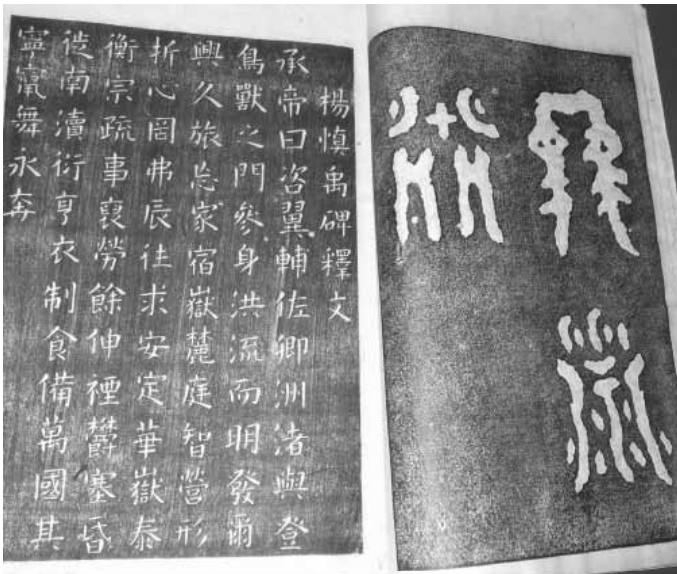 楊慎禹碑釋文
承帝曰咨翼輔佐卿洲渚與登
鳥獸之門參身洪流而明發爾
興久旅忘家宿嶽麓庭智營形
折心罔弗辰往求安定華嶽泰
衡宗疏事裒勞餘伸禋欝塞昏
徙南瀆衍亨衣制食備萬國其
寧竄舞永奔